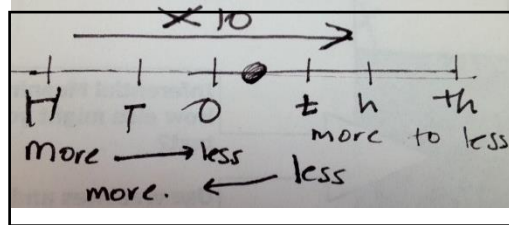 × 10
H T O t h th
more to less
more → less
more. ← less